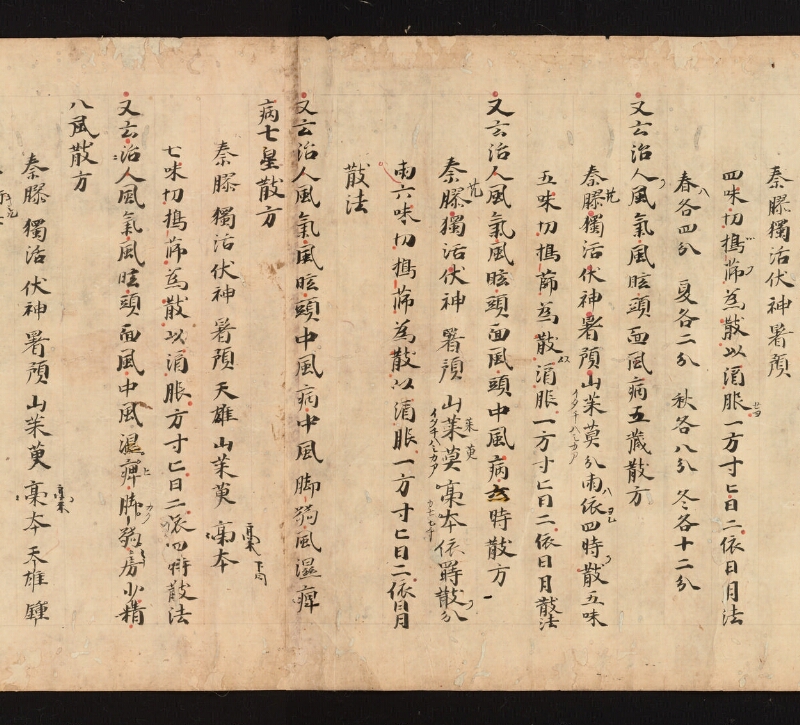 秦膠獨活伏神署預
四味切搗篩為散以酒服一方寸匕日二依日月法
春各四分 夏各二分 秋各八分 冬各十二分
又云治人風氣風眩頭面風病五藏散方
秦膠獨活伏神署預山茱萸分兩依四時散五味
五味切搗篩為散酒服一方寸匕日二依日月散法
又云治人風氣風眩頭面風頭中風病六時散方
秦膠獨活伏神署預山茱萸藁本依四時散分
兩六味切搗篩為散以酒服一方寸匕日二依日月
散法
又云治人風氣風眩頭中風病中風脚弱風濕痺
病七星散方
秦膠獨活伏神署預天雄山茱萸藁本
七味切搗篩為散以酒服方寸匕日二依四時散法
又云治人風氣風眩頭面風中風濕痺脚弱房少精
八風散方
秦膠獨活伏神署預山茱萸藁本天雄鍾